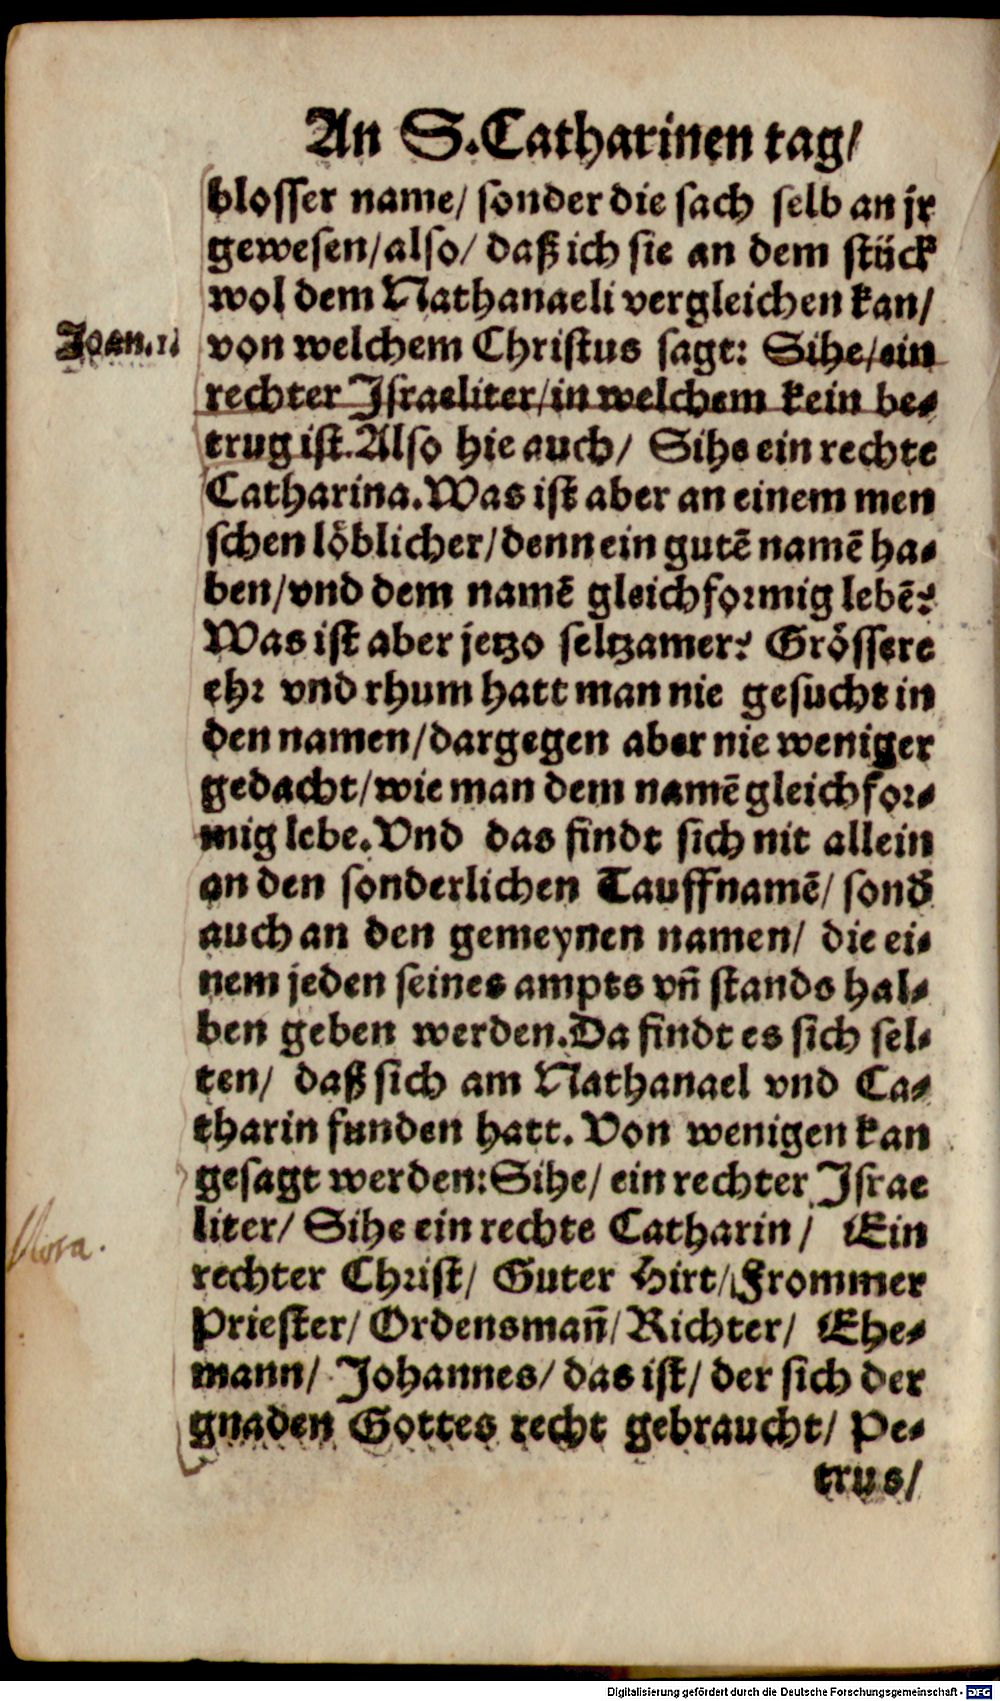 An S. Catharinen tag/
blosser name/ sonder die sach selb an jr
gewesen/also/ daß ich sie an dem stück
wol dem Nathanaeli vergleichen kan/
Joan. 1.
von welchem Christus sagt: Sihe/ein
rechter Israeliter/in welchem kein be⸗
trug ist. Also hie auch/ Sihe ein rechte
Catharina. Was ist aber an einem men
schen löblicher/denn ein gutē namē ha⸗
ben/vnd dem namē gleichformig lebē?
Was ist aber jetzo seltzamer? Grössere
ehr vnd rhum hatt man nie gesucht in
den namen/dargegen aber nie weniger
gedacht/wie man dem namē gleichfor⸗
mig lebe. Vnd das findt sich nit allein
an den sonderlichen Tauffnamē/ sond̃
auch an den gemeynen namen/ die ei⸗
nem jeden seines ampts vñ stands hal⸗
ben geben werden. Da findt es sich sel⸗
ten/ daß sich am Nathanael vnd Ca⸗
tharin funden hatt. Von wenigen kan
gesagt werden: Sihe/ ein rechter Israe
liter/ Sihe ein rechte Catharin/ Ein
rechter Christ/ Guter Hirt/Frommer
Priester/ Ordensmañ/Richter/ Ehe⸗
mann/ Johannes/ das ist/ der sich der
gnaden Gottes recht gebraucht/ Pe⸗
trus/
Digitalisierung gefördert durch die Deutsche Forschungsgemeinschaft - DFG